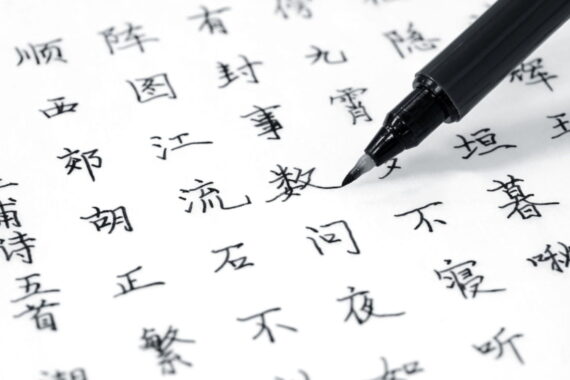 隐
垣暮啾
九霄
不寝听
有封事数问夜如
阵图江流石不
顺西郊胡正繁
甫诗五首